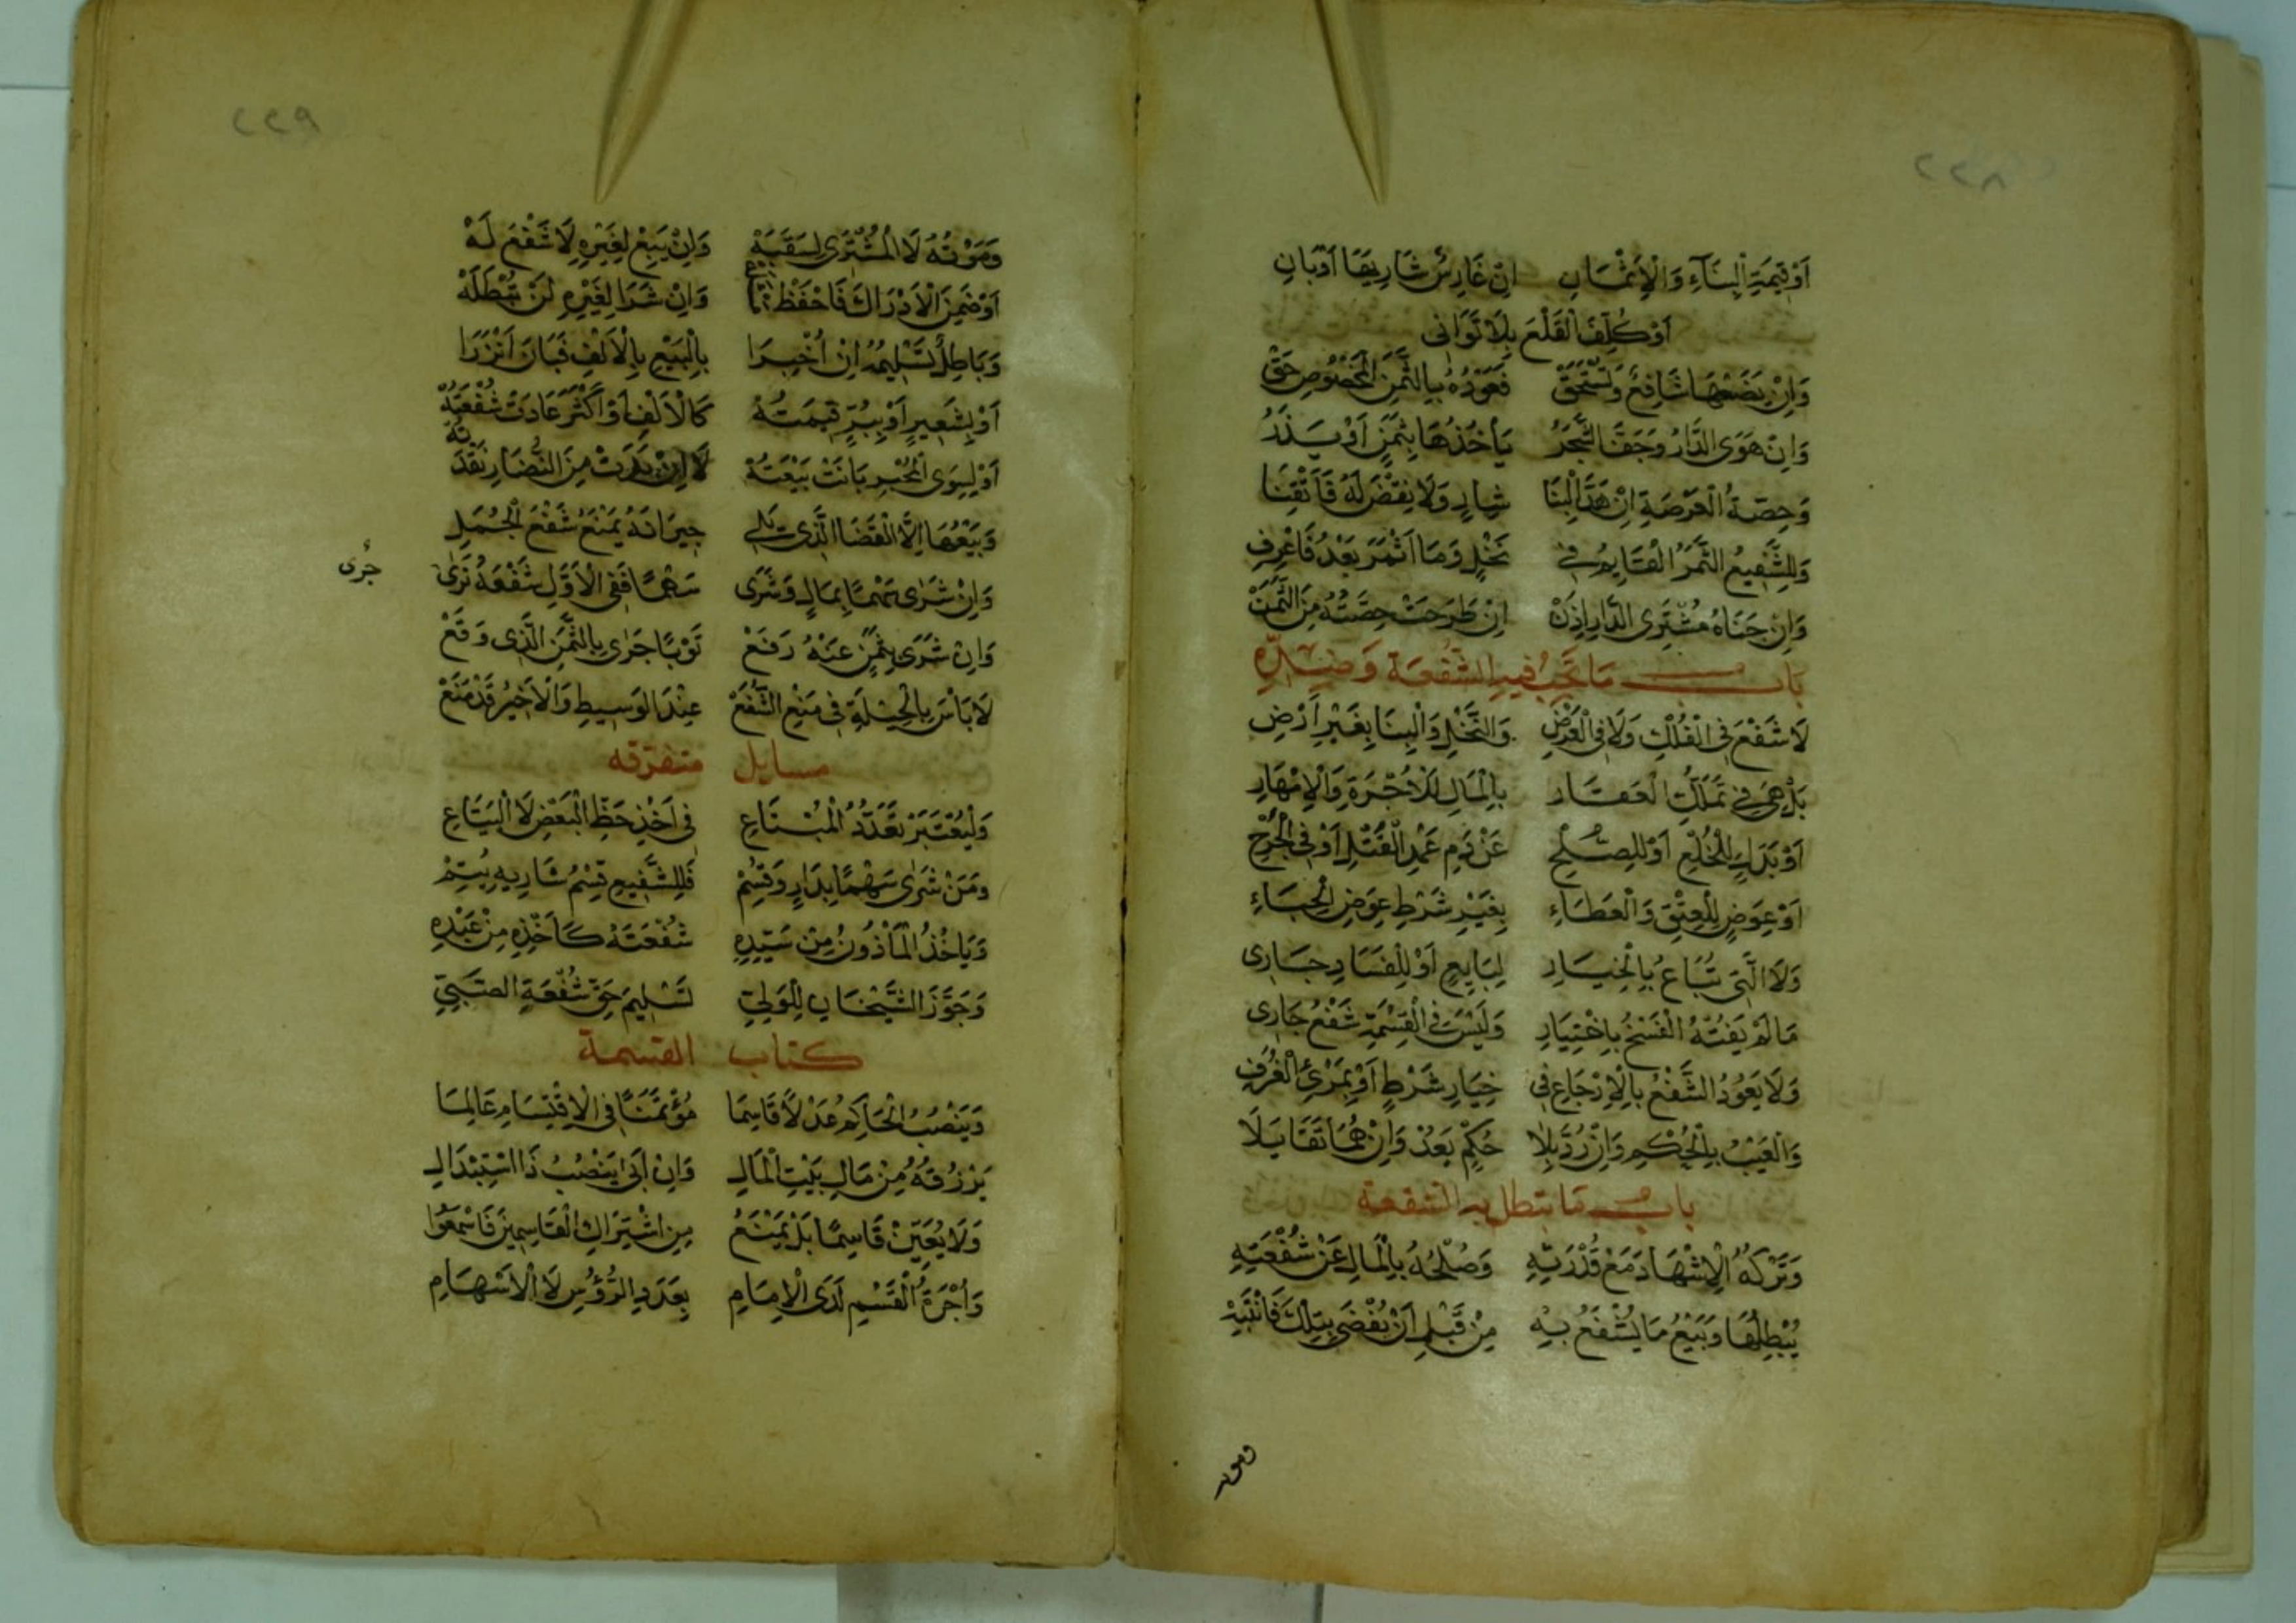 ٢٢٨
أَوْ قِيمَةَ الْبِنَاءِ وَالْأَثْمَانِ    اِنْ غَارِسٌ شَارِيهَا أَوْ بَانِ
أَوْ كُلِّفَ الْقَلْعَ بِلَا تَوَانِى
وَاِنْ يَضَعْهَا شَافِعٌ وَتُسْتَحَقْ    فَعَوْدُهُ بِالثَّمَنِ الْمَخْصُوصِ حَقْ
وَاِنْ هَوَى الدَّارُ وَجَفَّ الشَّجَرُ    يَأْخُذُهَا بِثَمَنٍ أَوْ يَذَرُ
وَحِصَّةُ الْعَرْصَةِ اِنْ هَدَّ الْبِنَا    شَارٍ وَلَا نَقْضَ لَهُ فَأَتْقِنَا
وَلِلشَّفِيعِ الثَّمَرُ الْقَايِمُ فِى    نَخْلٍ وَمَا أَثْمَرَ بَعْدُ فَاعْرِفِ
وَاِنْ جَنَاهُ مُشْتَرِى الدَّارِ اِذَنْ    اِنْ طُرِحَتْ حِصَّتُهُ مِنَ الثَّمَنْ
باب مَا تَجِبُ فِيهِ الشُّفْعَة وَضِدِّهِ
لَا شَفْعَ فِى الْفُلْكِ وَلَا فِى الْعَرْضِ    وَالنَّخْلِ وَالْبِنَا بِغَيْرِ أَرْضِ
بَلْ هِىَ فِى تَمَلُّكِ الْعَقَارِ    بِالْمَالِ لَا الْأُجْرَةِ وَالْإِمْهَارِ
أَوْ بَدَلِ الْخُلْعِ أَوْ لِلصُّلْحِ    عَنْ دَمِ عَمْدِ الْقَتْلِ أَوْ فِى الْجُرْحِ
أَوْ عِوَضٍ لِلْعِتْقِ وَالْعَطَاءِ    بِغَيْرِ شَرْطِ عِوَضِ الْحِبَاءِ
وَلَا الَّتِى تُبَاعُ بِالْخِيَارِ    لِبَايِعٍ أَوْ لِلْفَسَادِ جَارِى
مَا لَمْ يَفُتْهُ الْفَسْخُ بِاخْتِيَارِ    وَلَيْسَ فِى الْقِسْمَةِ شَفْعٌ جَارِى
وَلَا يَعُودُ الشَّفْعُ بِالْإِرْجَاعِ فِى    خِيَارِ شَرْطٍ أَوْ بِمَرْئِ الْغُرَفِ
وَالْعَيْبُ بِالْحُكْمِ وَاِنْ رُدَّ بِلَا    حُكْمٍ يَعُدْ وَاِنْ هُمَا تَقَايَلَا
باب مَا يبطل به الشفعة
وَتَرْكُهُ الْإِشْهَادَ مَعْ قُدْرَتِهِ    وَصُلْحُهُ بِالْمَالِ عَنْ شُفْعَتِهِ
يُبْطِلُهَا وَبَيْعُ مَا يُشْفَعُ بِهِ    مِنْ قَبْلِ أَنْ يُقْضَى بِتِلْكَ فَانْتَبِهْ
وموته
٢٢٩
وَمَوْتُهُ لَا الْمُشْتَرِى لِسَقَبِهْ    وَاِنْ يَبِعْ لِغَيْرِهِ لَا شَفْعَ لَهْ
أَوْ ضَمِنَ الْأَدْرَاكَ فَاحْفَظْ    وَاِنْ شَرَا لِغَيْرِهِ لَنْ تُبْطِلَهْ
وَبَاطِلٌ تَسْلِيمُهُ اِنْ أُخْبِرَا    بِالْبَيْعِ بِالْأَلْفِ فَبَانَ أَنْزَرَا
أَوْ بِشَعِيرٍ أَوْ بِبُرٍّ قِيمَتُهْ    كَالْأَلْفِ أَوْ أَكْثَرَ عَادَتْ شُفْعَتُهْ
أَوْ لِسِوَى الْمُخْبَرِ بَانَتْ بَيْعَتُهْ    لَا اِنْ بَدَتْ مِنَ النُّضَارِ نَقْدَتُهْ
وَبَيْعُهَا اِلَّا الْقَضَا الَّذِى يَلِى    جِيرَانَهُ يَمْنَعُ شَفْعَ الْجُمَلِ
وَاِنْ شَرَى سَهْمًا بِمَالٍ وَشَرَى    سَهْمًا فَفِى الْأَوَّلِ شَفْعَهُ نَرَى
جرى
وَاِنْ شَرَى بِثَمَنٍ عَنْهُ رَفَعْ    ثَوْبًا جَرَى بِالثَّمَنِ الَّذِى وَقَعْ
لَا بَأْسَ بِالْحِيلَةِ فِى مَنْعِ الشَّفْعْ    عِنْدَ الْوَسِيطِ وَالْأَخِيرُ قَدْ مَنَعْ
مسايل متفرقه
وَلْيُعْتَبَرْ تَعَدُّدُ الْمُبْتَاعِ    فِى أَخْذِ حَظِّ الْبَعْضِ لَا الْبَيَّاعِ
وَمَنْ شَرَى سَهْمًا بِدَارٍ وَقُسِمْ    فَلِلشَّفِيعِ قِسْمُ شَارِيهِ يُتِمْ
وَيَاخُذُ الْمَأْذُونُ مِنْ سَيِّدِهِ    شُفْعَتَهُ كَأَخْذِهِ مِنْ عَبْدِهِ
وَجَوَّزَ الشَّيْخَانِ لِلْوَلِيِّ    تَسْلِيمَ حَقِّ شُفْعَةِ الصَّبِيِّ
كتاب القسمة
وَيَنْصُبُ الْحَاكِمُ عَدْلًا قَاسِمَا    مُؤْتَمَنًا فِى الْاِقْتِسَامِ عَالِمَا
يَرْزُقُهُ مِنْ مَالِ بَيْتِ الْمَالِ    وَاِنْ أَبَى يَنْصُبُ ذَا اسْتِبْدَالِ
وَلَا يُعَيِّنْ قَاسِمًا بَلْ يَمْنَعُ    مِنِ اشْتِرَاكِ الْقَاسِمِينَ فَاسْمَعُوا
وَأُجْرَةُ الْقَسْمِ لَدَى الْإِمَامِ    بِعَدَدِ الرُّؤُسِ لَا الْأَسْهَامِ